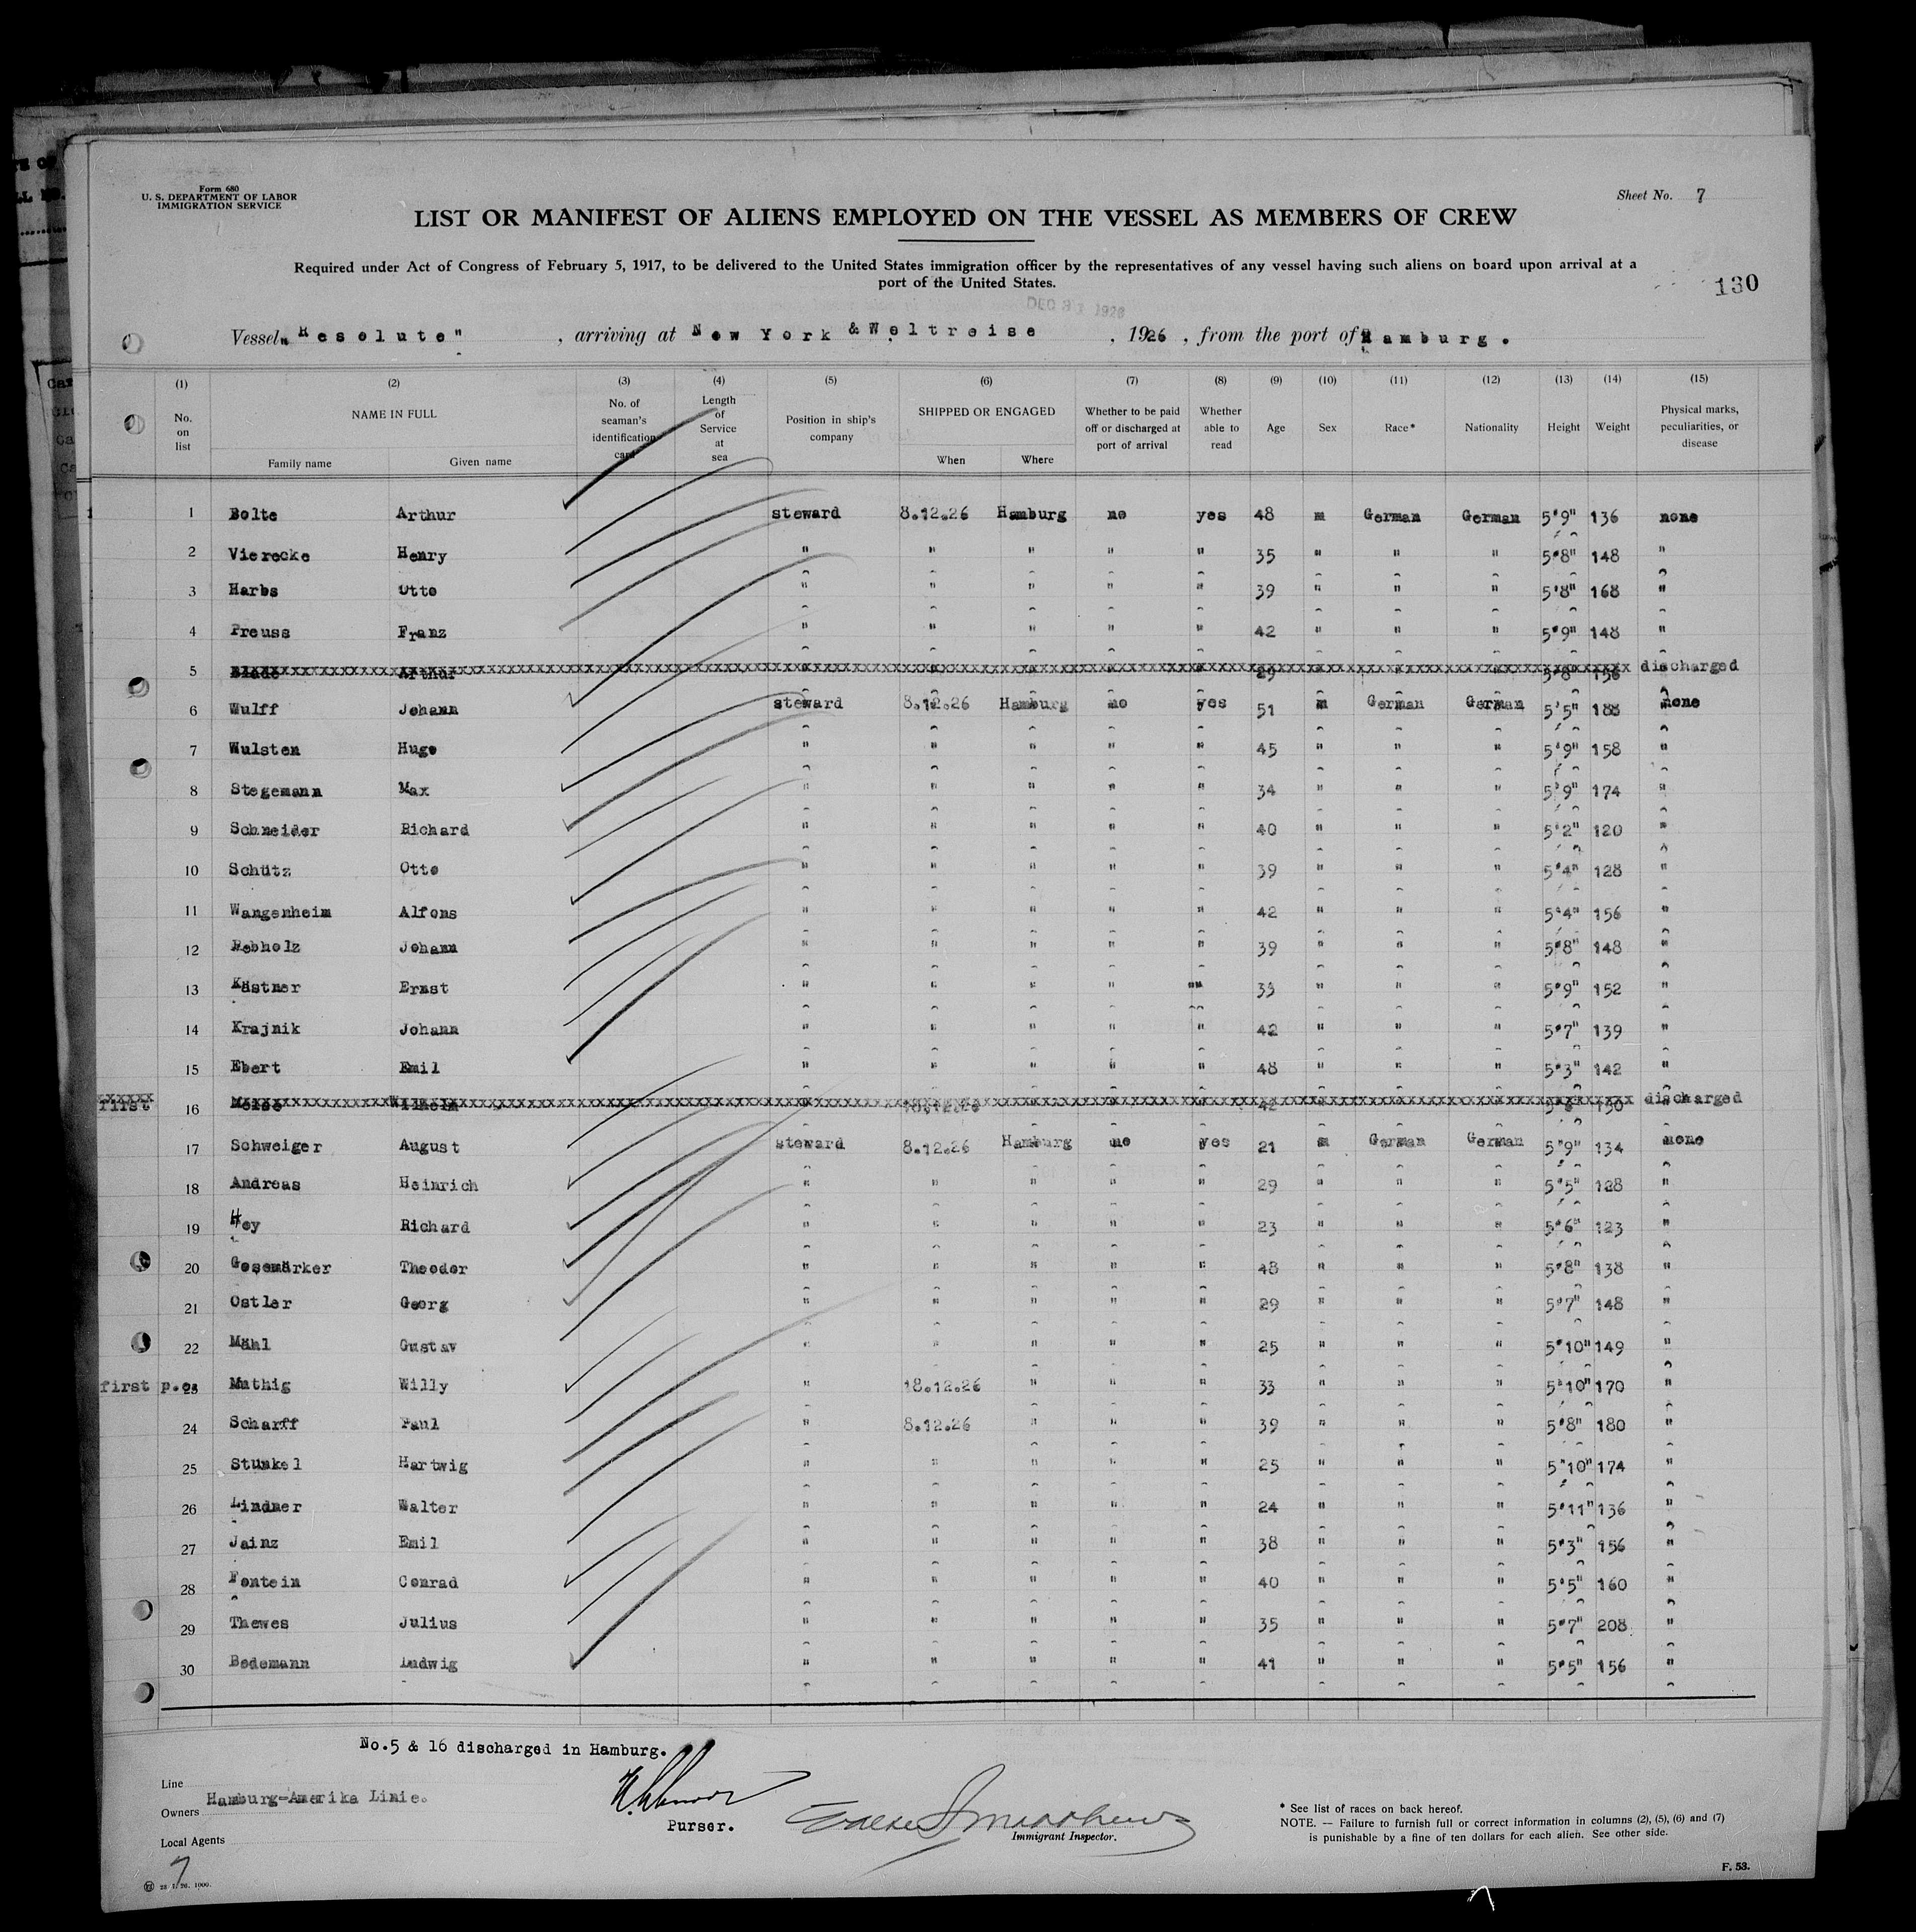 Form 680
U. S. DEPARTMENT OF LABOR
IMMIGRATION SERVICE
Sheet No. 7
LIST OR MANIFEST OF ALIENS EMPLOYED ON THE VESSEL AS MEMBERS OF CREW
Required under Act of Congress of February 5, 1917, to be delivered to the United States immigration officer by the representatives of any vessel having such aliens on board upon arrival at a
port of the United States.
130
DEC 31 1926
Vessel "Resolute", arriving at New York & Weltreise, 1926, from the port of Hamburg.
(1) (2) (3) (4) (5) (6) (7) (8) (9) (10) (11) (12) (13) (14) (15)
No. on list NAME IN FULL Family name Given name No. of seaman's identification card Length of Service at sea Position in ship's company SHIPPED OR ENGAGED When Where Whether to be paid off or discharged at port of arrival Whether able to read Age Sex Race* Nationality Height Weight Physical marks, peculiarities, or disease
1 Bolte Arthur steward 8.12.26 Hamburg no yes 48 m German German 5'9" 136 none
2 Vierecke Henry " " " " " 35 " " " 5'8" 148 "
3 Harbs Otto " " " " " 39 " " " 5'8" 168 "
4 Preuss Franz " " " " " 42 " " " 5'9" 148 "
5 Blade Arthur " " " " " 29 " " " 5'8" 156 discharged
6 Wulff Johann steward 8.12.26 Hamburg no yes 51 m German German 5'5" 188 none
7 Wulsten Hugo " " " " " 45 " " " 5'9" 158 "
8 Stegemann Max " " " " " 34 " " " 5'9" 174 "
9 Schneider Richard " " " " " 40 " " " 5'2" 120 "
10 Schütz Otto " " " " " 39 " " " 5'4" 128 "
11 Wangenheim Alfons " " " " " 42 " " " 5'4" 156 "
12 Rebholz Johann " " " " " 39 " " " 5'8" 148 "
13 Kästner Ernst " " " " "" 33 " " " 5'9" 152 "
14 Krajnik Johann " " " " " 42 " " " 5'7" 139 "
15 Ebert Emil " " " " " 48 " " " 5'3" 142 "
first 16 Meise Wilhelm " 18.12.26 " " " 42 " " " 150 discharged
17 Schweiger August steward 8.12.26 Hamburg no yes 21 m German German 5'9" 134 none
18 Andreas Heinrich " " " " " 29 " " " 5'5" 128 "
19 Hey Richard " " " " " 23 " " " 5'6" 123 "
20 Gosemärker Theodor " " " " " 48 " " " 5'8" 138 "
21 Ostler Georg " " " " " 29 " " " 5'7" 148 "
22 Mähl Gustav " " " " " 25 " " " 5'10" 149 "
first p.c. 23 Muthig Willy " 18.12.26 " " " 33 " " " 5'10" 170 "
24 Scharff Paul " 8.12.26 " " " 39 " " " 5'8" 180 "
25 Stunkel Hartwig " " " " " 25 " " " 5'10" 174 "
26 Lindner Walter " " " " " 24 " " " 5'11" 136 "
27 Jainz Emil " " " " " 38 " " " 5'3" 156 "
28 Fontein Conrad " " " " " 40 " " " 5'5" 160 "
29 Thewes Julius " " " " " 35 " " " 5'7" 208 "
30 Bodemann Ludwig " " " " " 41 " " " 5'5" 156 "
No.5 & 16 discharged in Hamburg.
Line
Owners Hamburg-Amerika Linie.
Local Agents
7
Purser.
Immigrant Inspector.
* See list of races on back hereof.
NOTE. — Failure to furnish full or correct information in columns (2), (5), (6) and (7)
is punishable by a fine of ten dollars for each alien. See other side.
F. 53.